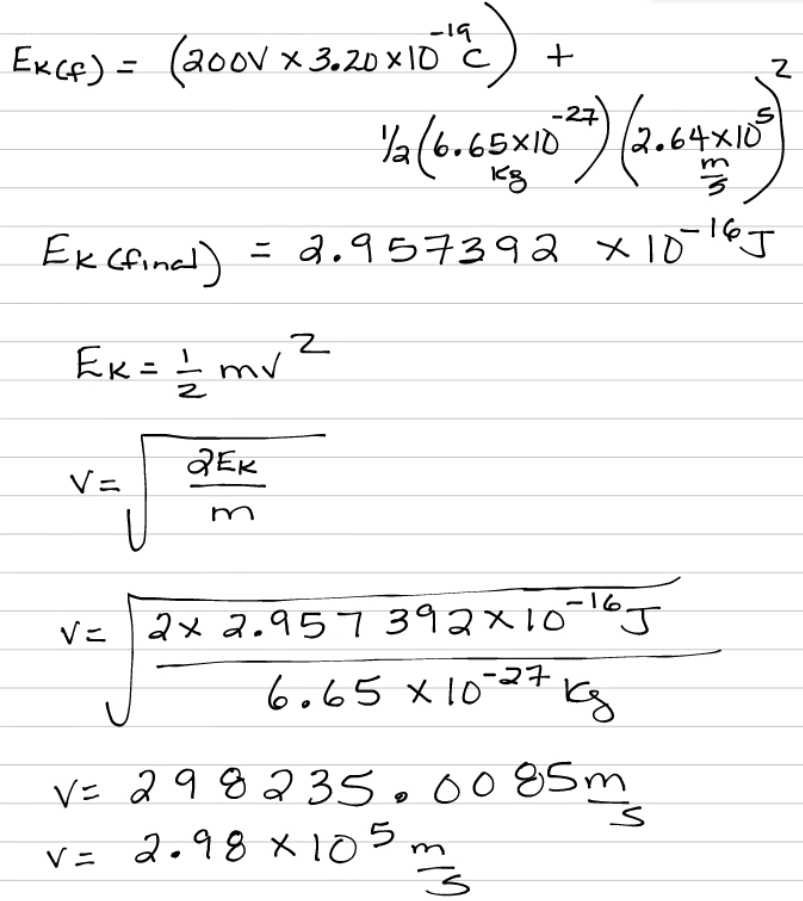 Ek(f) = (200V × 3.20 × 10⁻¹⁹ C) +
½ (6.65×10⁻²⁷ kg) (2.64×10⁵ m/s)²
Ek (final) = 2.957392 × 10⁻¹⁶ J
Ek = 1/2 mv²
v = √(2Ek/m)
v = √(2 × 2.957392×10⁻¹⁶ J / 6.65 × 10⁻²⁷ kg)
v = 298235.0085 m/s
v = 2.98 × 10⁵ m/s